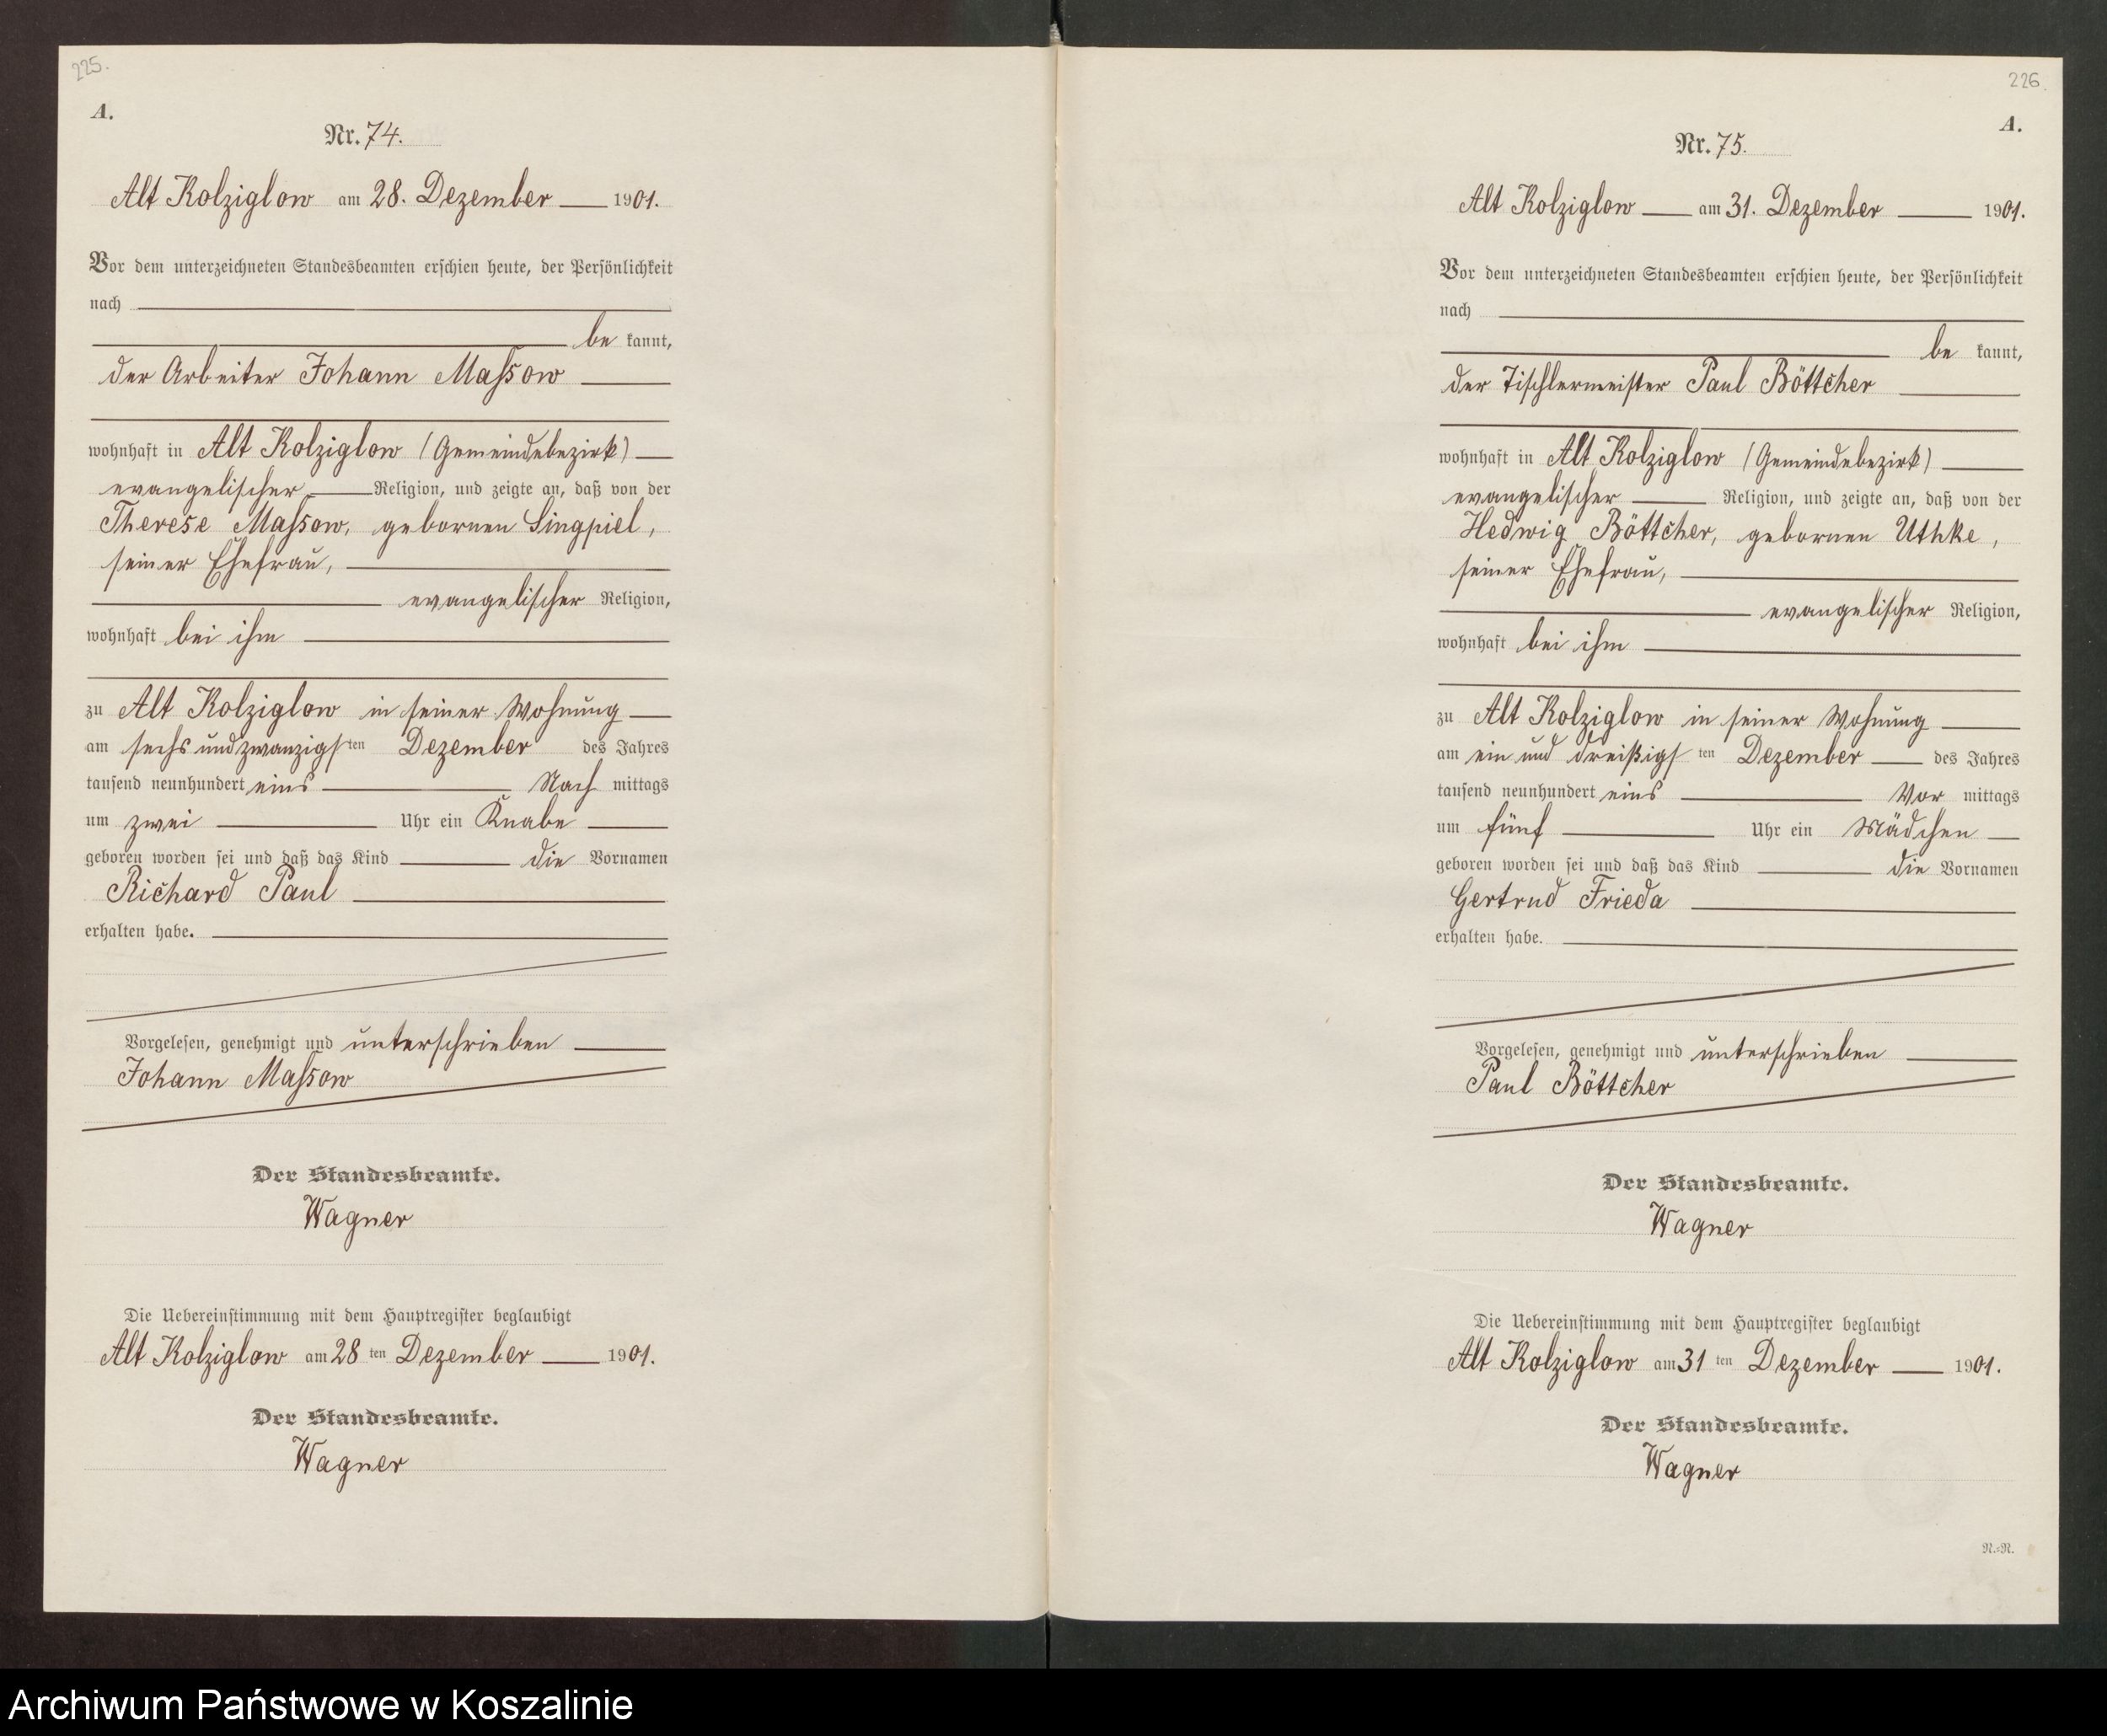 225.
A.
Nr. 74.
Alt Kolziglow am 28. Dezember 1901.
Vor dem unterzeichneten Standesbeamten erschien heute, der Persönlichkeit
nach
be kannt,
der Arbeiter Johann Massow
wohnhaft in Alt Kolziglow (Gemeindebezirk)
evangelischer Religion, und zeigte an, daß von der
Therese Massow, gebornen Singpiel,
seiner Ehefrau,
evangelischer Religion,
wohnhaft bei ihm
zu Alt Kolziglow in seiner Wohnung
am sechs und zwanzigsten Dezember des Jahres
tausend neunhundert eins Nach mittags
um zwei Uhr ein Knabe
geboren worden sei und daß das Kind die Vornamen
Richard Paul
erhalten habe.
Vorgelesen, genehmigt und unterschrieben
Johann Massow
Der Standesbeamte.
Wagner
Die Uebereinstimmung mit dem Hauptregister beglaubigt
Alt Kolziglow am 28 ten Dezember 1901.
Der Standesbeamte.
Wagner
226.
A.
Nr. 75.
Alt Kolziglow am 31. Dezember 1901.
Vor dem unterzeichneten Standesbeamten erschien heute, der Persönlichkeit
nach
be kannt,
der Tischlermeister Paul Böttcher
wohnhaft in Alt Kolziglow (Gemeindebezirk)
evangelischer Religion, und zeigte an, daß von der
Hedwig Böttcher, gebornen Uthke,
seiner Ehefrau,
evangelischer Religion,
wohnhaft bei ihm
zu Alt Kolziglow in seiner Wohnung
am ein und dreißigsten Dezember des Jahres
tausend neunhundert eins Vor mittags
um fünf Uhr ein Mädchen
geboren worden sei und daß das Kind die Vornamen
Gertrud Frieda
erhalten habe.
Vorgelesen, genehmigt und unterschrieben
Paul Böttcher
Der Standesbeamte.
Wagner
Die Uebereinstimmung mit dem Hauptregister beglaubigt
Alt Kolziglow am 31 ten Dezember 1901.
Der Standesbeamte.
Wagner
N.=N.
Archiwum Państwowe w Koszalinie